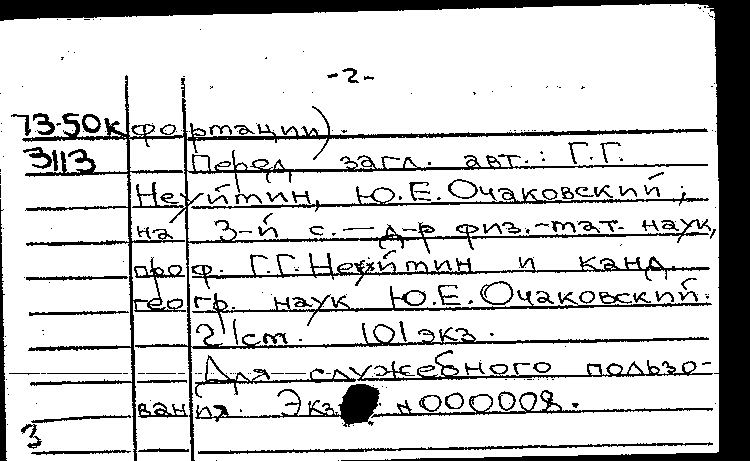 -2-
73-50к фортации).
3113 Перед загл. авт.: Г.Г.
Неуймин, Ю.Е.Очаковский;
на 3-й с. — д-р физ.-мат. наук,
проф. Г.Г.Неуймин и канд.
геогр. наук Ю.Е.Очаковский.
21ст. 101экз.
Для служебного пользо-
вания. Экз н000008.
3